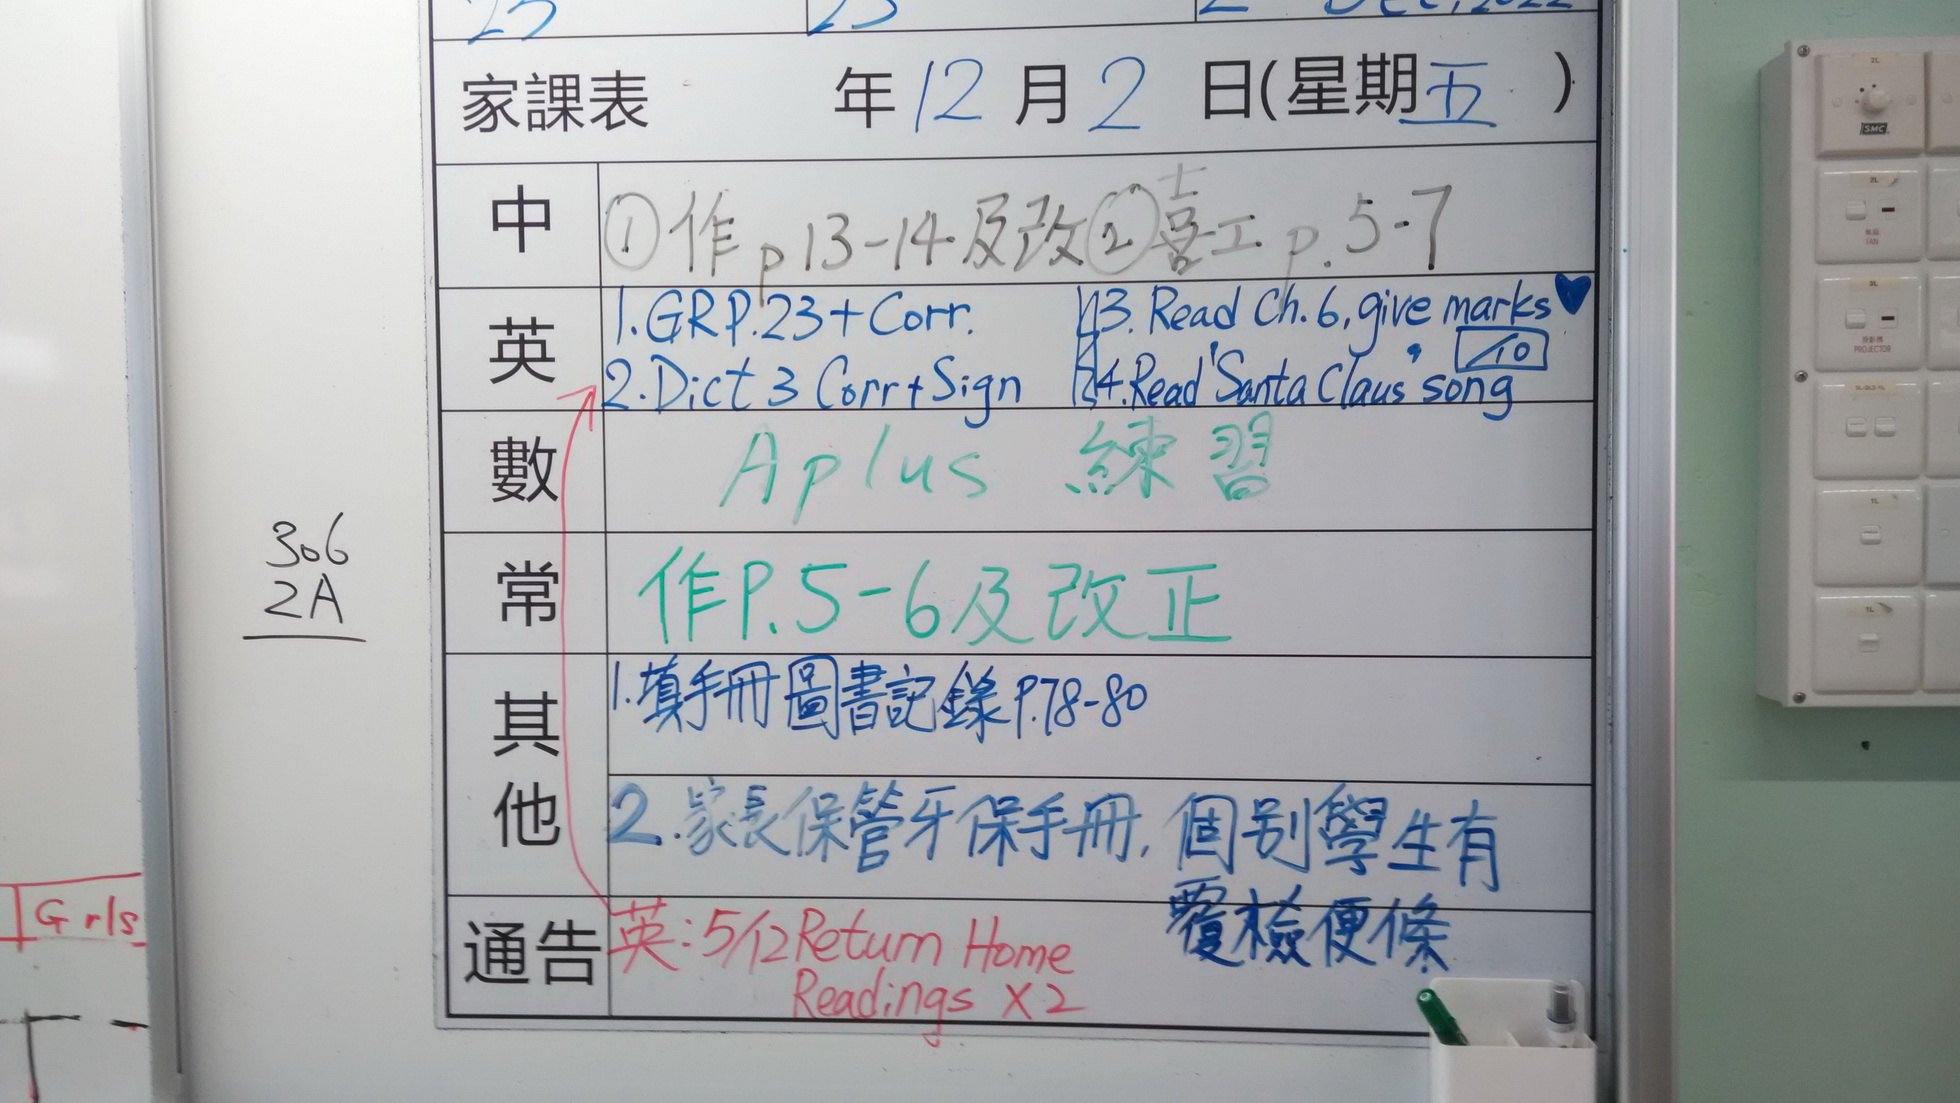 家課表 年 12 月 2 日(星期 五 )
中 ① 作 p 13-14 及改 ② 喜工 p. 5-7
英 1. GR P.23 + Corr. 3. Read Ch. 6, give marks ♥
/10
2. Dict 3 Corr + Sign 4. Read 'Santa Claus' song
數 Aplus 練習
常 作P. 5-6 及改正
其他 1. 填手冊圖書記錄 P.78-80
2. 家長保管牙保手冊, 個別學生有
覆檢便條
通告 英: 5/12 Return Home
Readings X 2
306
2A
Grls
SMC
FAN
PROJECTOR